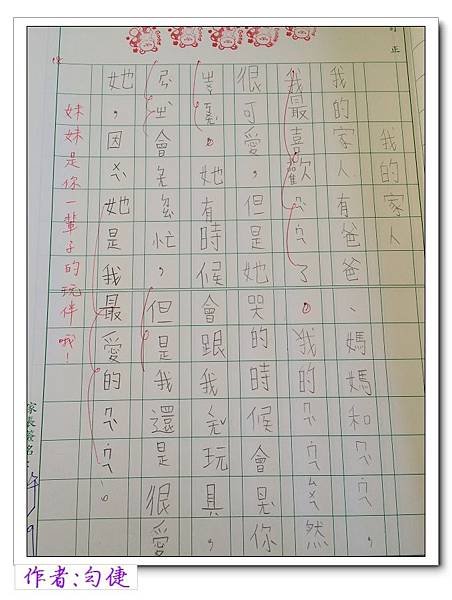 訂正
我的家人
我的家人有爸爸、媽媽和ㄇㄟˋㄇㄟ˙，
我最喜歡ㄇㄟˋㄇㄟ˙了。我的ㄇㄟˋㄇㄟ˙ㄙㄨㄟ然
很可愛，但是她哭的時候會 你
生氣。她有時候會跟我 玩具，
會 忙，但是我還是很愛
她，因ㄨㄟˋ她是我最愛的ㄇㄟˋㄇㄟ˙。
妹妹是你一輩子的玩伴哦！
家長簽名：
作者:勻倢